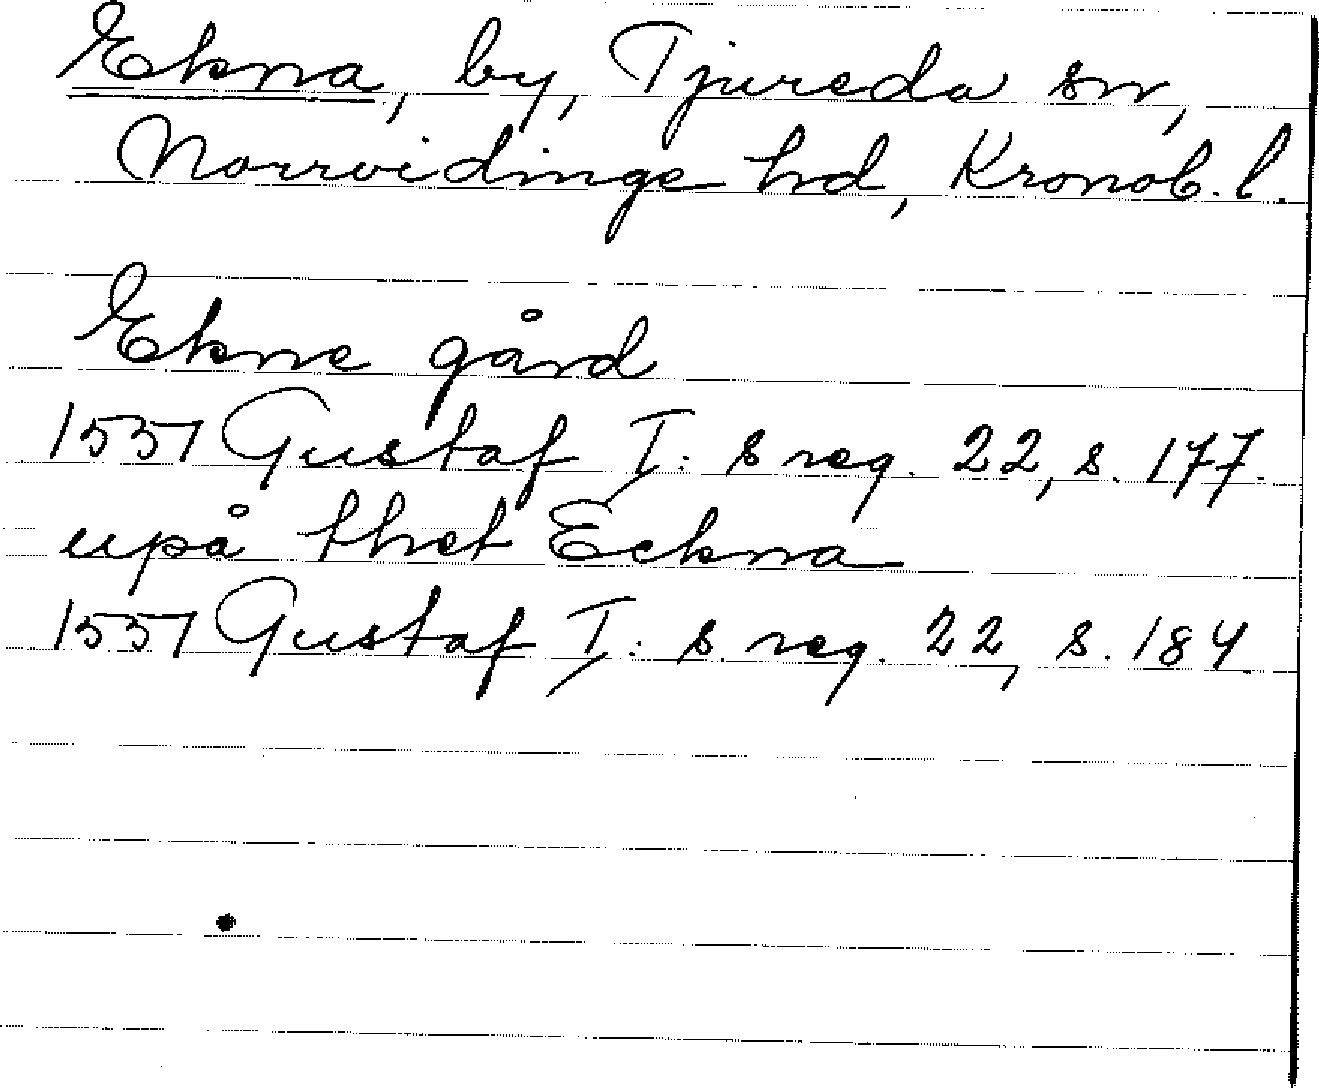 Ekna, by, Tjureda sn,
Norrvidinge hd, Kronob. l.
Ekne gård
1551 Gustaf I: s reg. 22, s. 177.
upå thet Eckna
1551 Gustaf I: s. reg. 22, s. 184